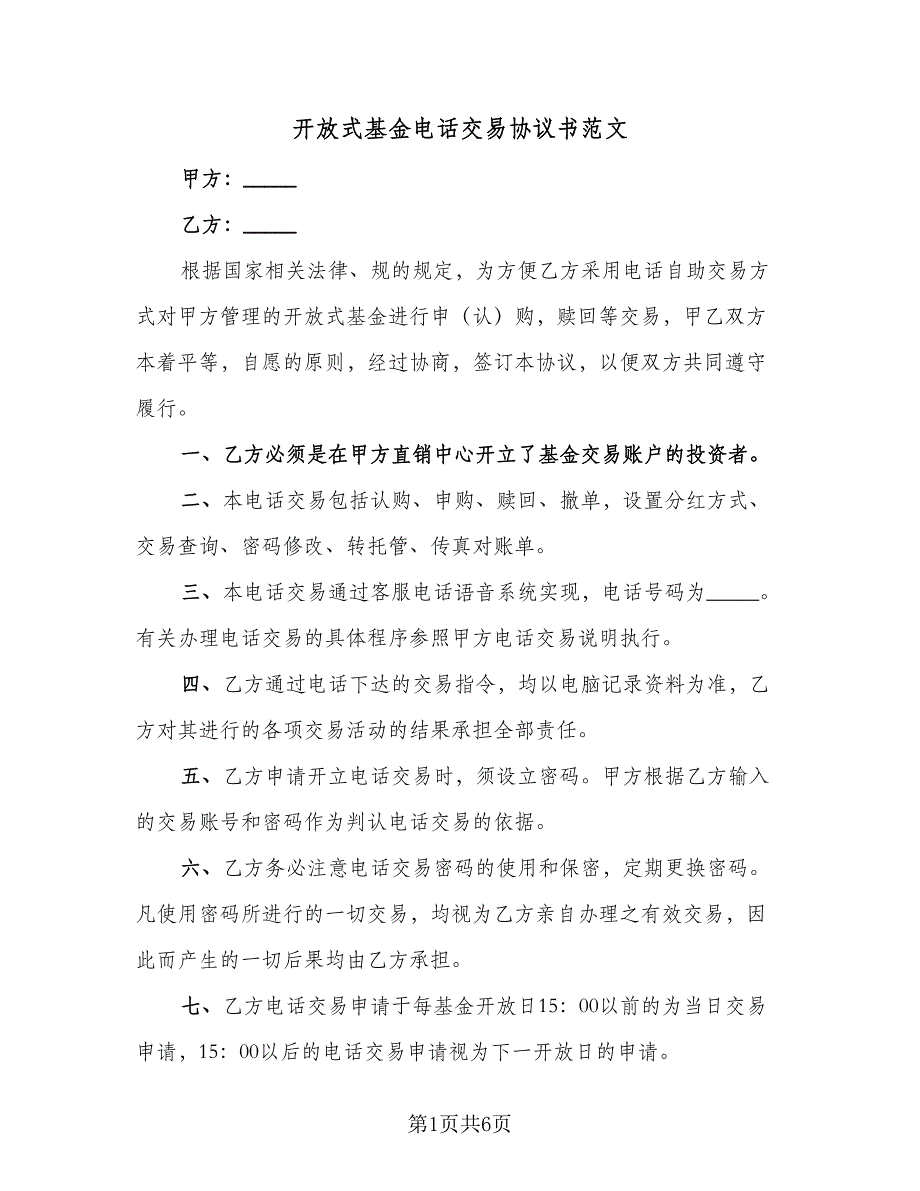 开放式基金电话交易协议书范文
甲方：_____
乙方：_____
根据国家相关法律、规的规定，为方便乙方采用电话自助交易方
式对甲方管理的开放式基金进行申（认）购，赎回等交易，甲乙双方
本着平等，自愿的原则，经过协商，签订本协议，以便双方共同遵守
履行。
一、乙方必须是在甲方直销中心开立了基金交易账户的投资者。
二、本电话交易包括认购、申购、赎回、撤单，设置分红方式、
交易查询、密码修改、转托管、传真对账单。
三、本电话交易通过客服电话语音系统实现，电话号码为_____。
有关办理电话交易的具体程序参照甲方电话交易说明执行。
四、乙方通过电话下达的交易指令，均以电脑记录资料为准，乙
方对其进行的各项交易活动的结果承担全部责任。
五、乙方申请开立电话交易时，须设立密码。甲方根据乙方输入
的交易账号和密码作为判认电话交易的依据。
六、乙方务必注意电话交易密码的使用和保密，定期更换密码。
凡使用密码所进行的一切交易，均视为乙方亲自办理之有效交易，因
此而产生的一切后果均由乙方承担。
七、乙方电话交易申请于每基金开放日15：00以前的为当日交易
申请，15：00以后的电话交易申请视为下一开放日的申请。
第1页共6页